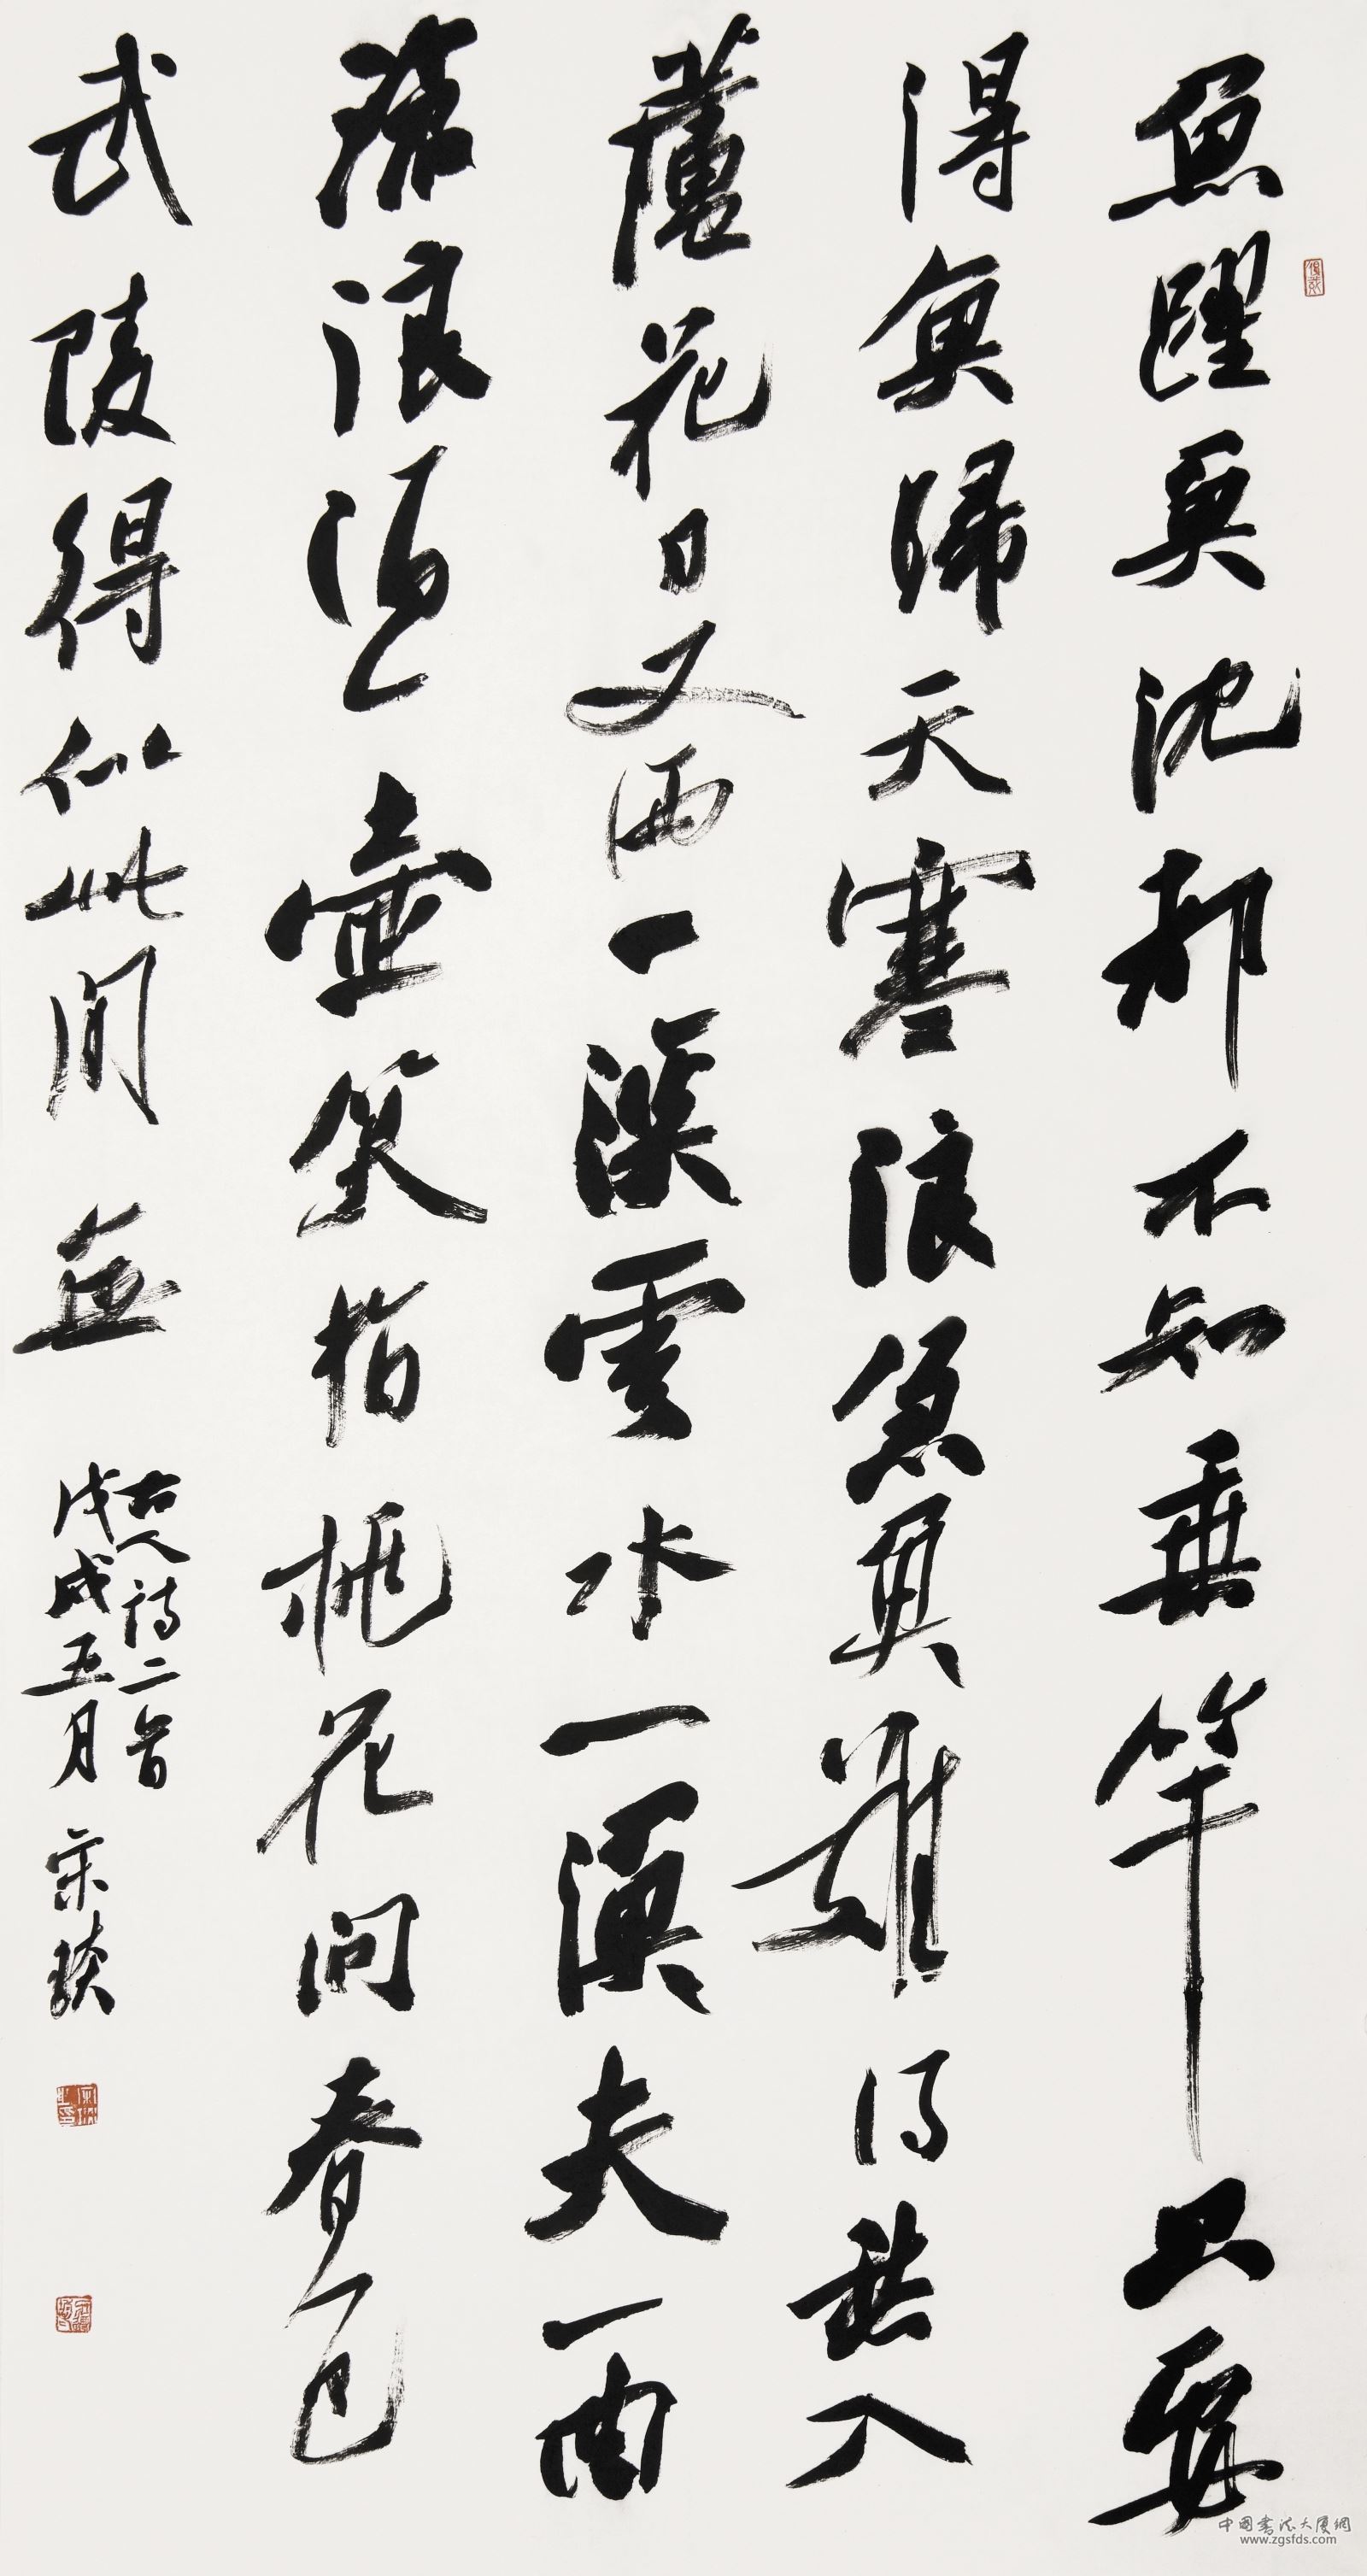 魚躍魚沈都不知垂竿只要
得魚歸天寒浪急魚難得愁入
蘆花日又西一溪雲水一漁夫一曲
滄浪酒一壺笑指桃花問春色
武陵得似此間無
古人詩二首
戊戌五月 宋琰
中国書法大厦網
www.zgsfds.com